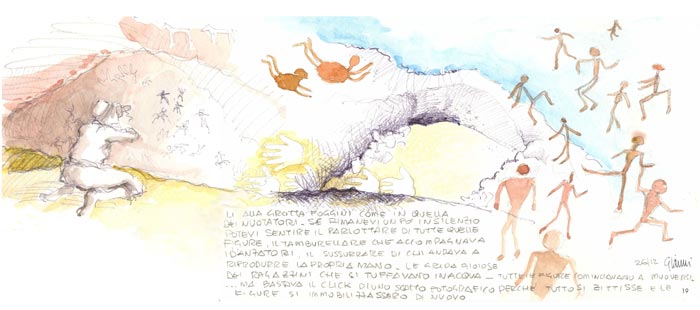 LÌ ALLA GROTTA FOGGINI COME IN QUELLA
DEI NUOTATORI - SE RIMANEVI UN PO' IN SILENZIO
POTEVI SENTIRE IL PARLOTTARE DI TUTTE QUELLE
FIGURE, IL TAMBURELLARE CHE ACCOMPAGNAVA
I DANZATORI, IL SUSSURRARE DI CHI ANDAVA A
RIPRODURRE LA PROPRIA MANO - LE GRIDA GIOIOSE
DEI RAGAZZINI CHE SI TUFFAVANO IN ACQUA - TUTTE LE FIGURE COMINCIAVANO A MUOVERSI
... MA BASTAVA IL CLICK DI UNO SCATTO FOTOGRAFICO PERCHÉ TUTTO SI ZITTISSE E LE
FIGURE SI IMMOBILIZZASSERO DI NUOVO
Gianni
19